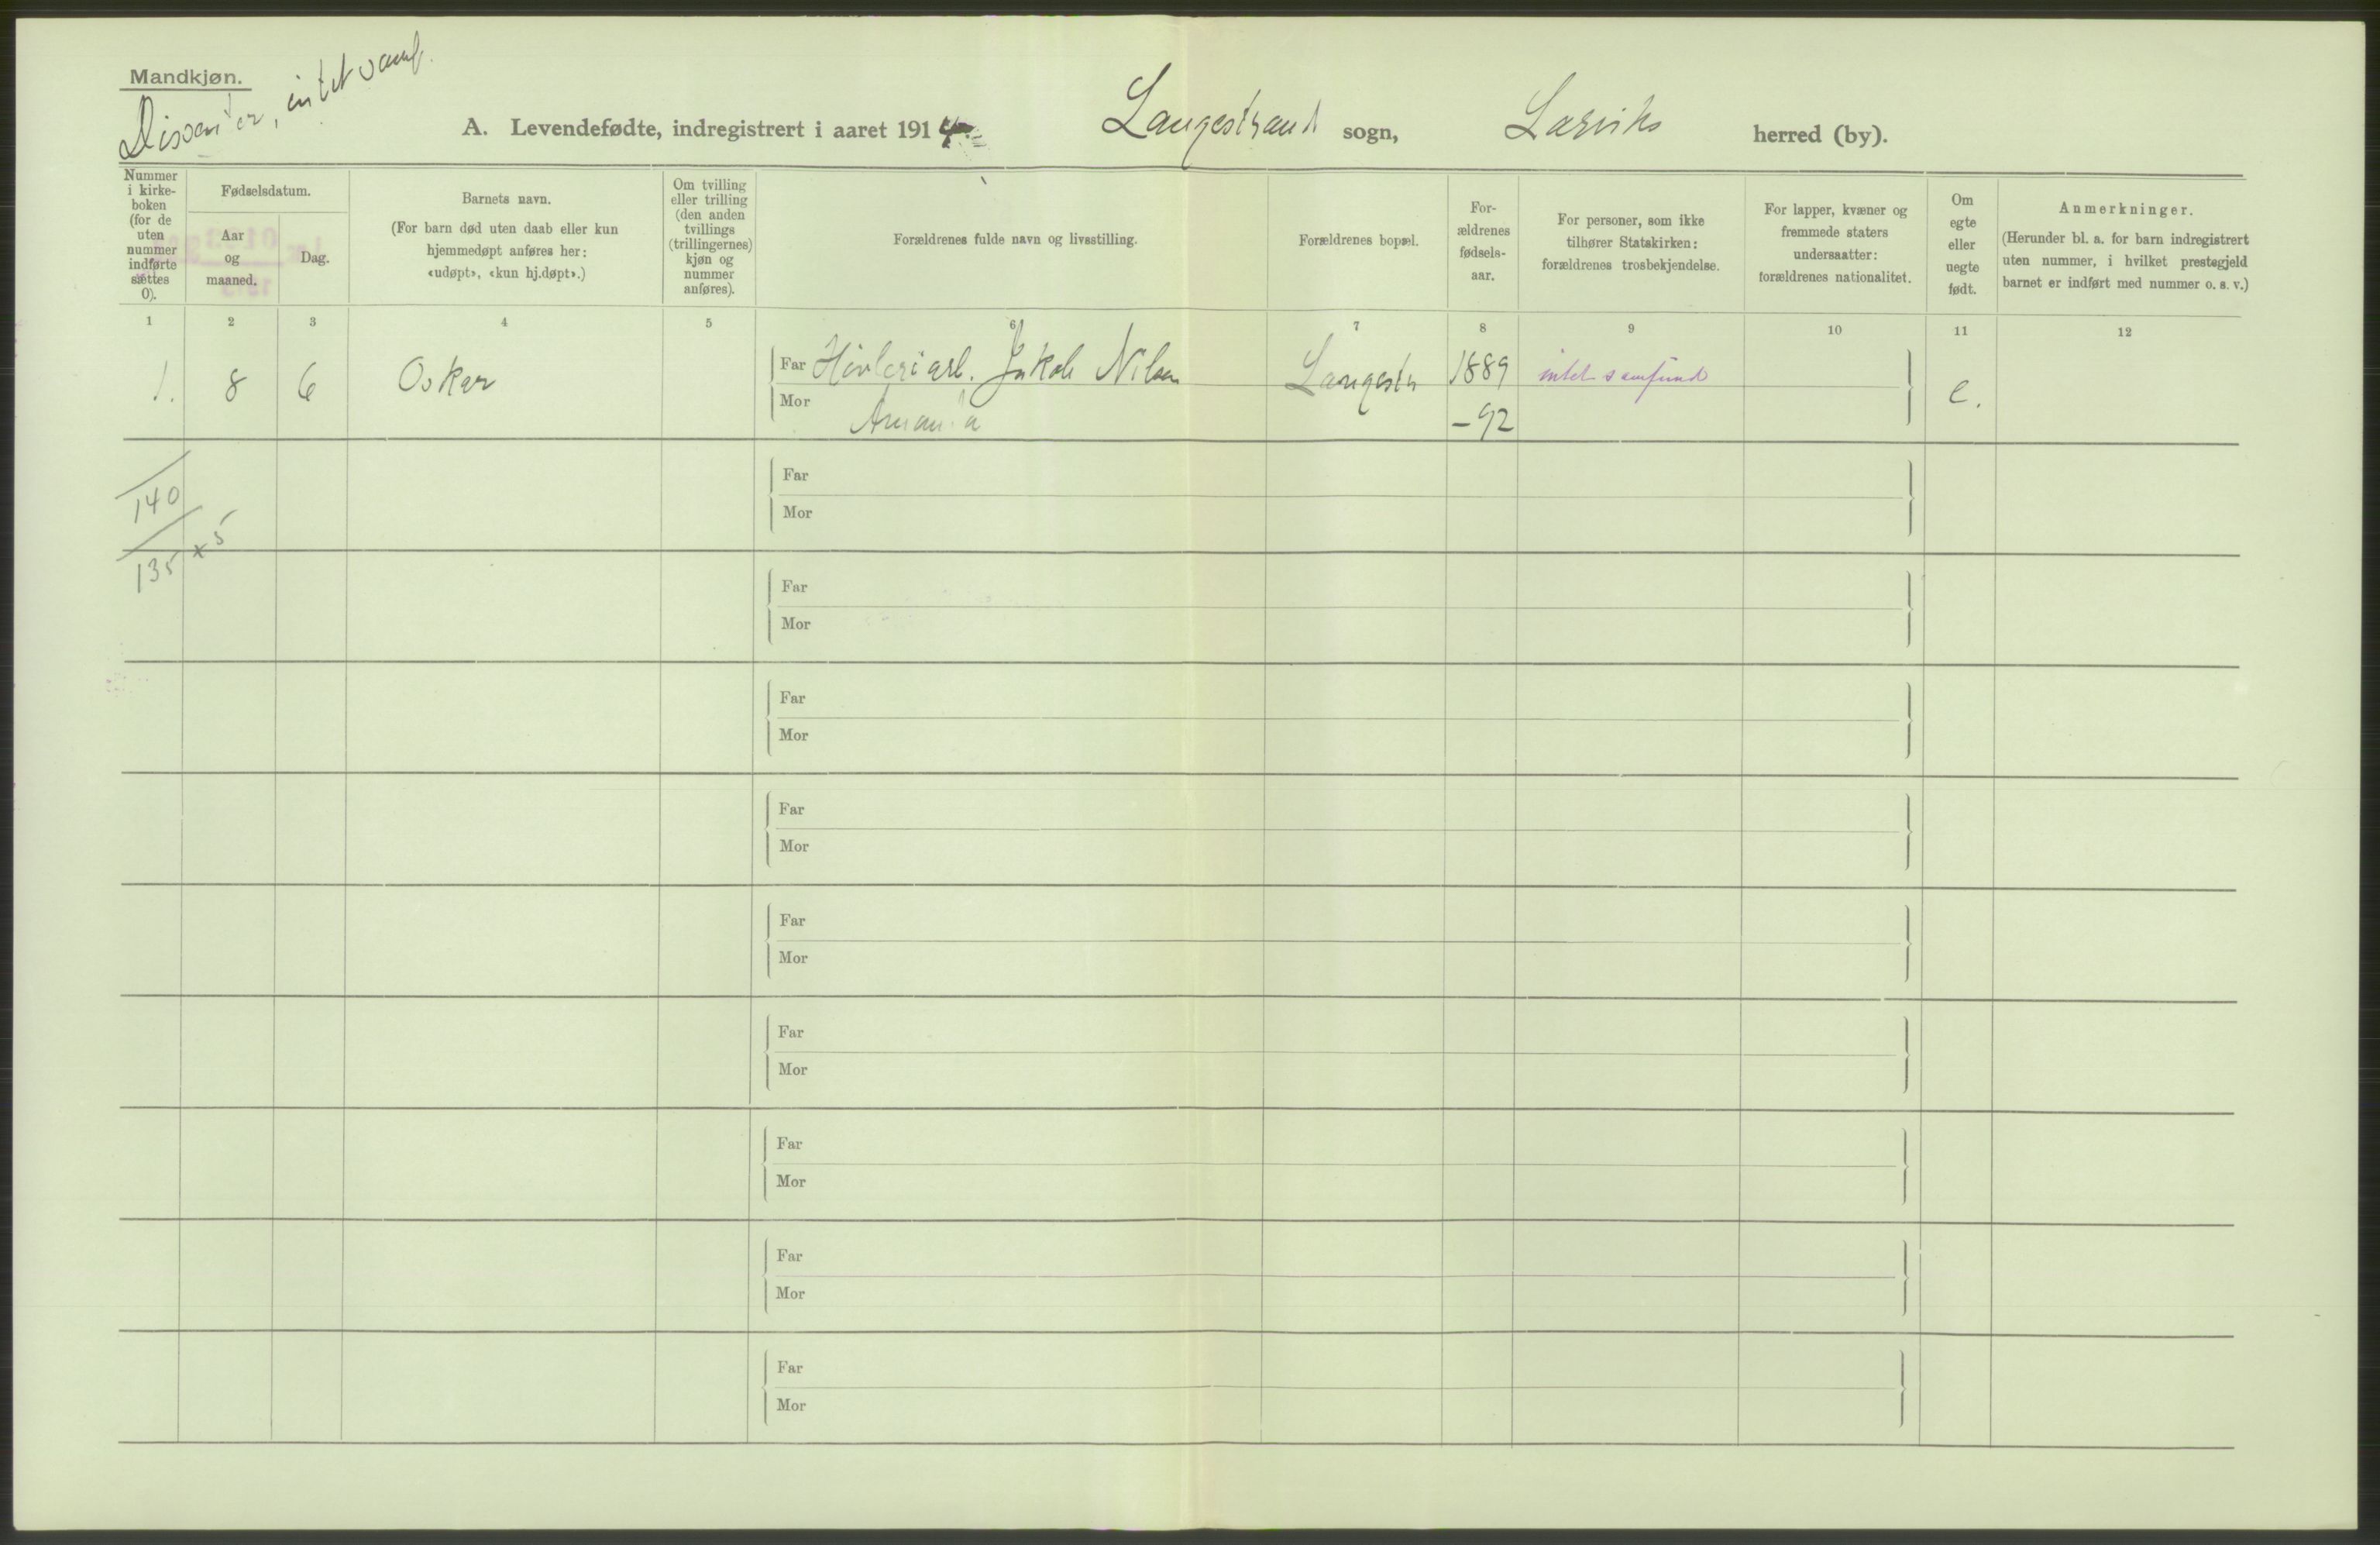 Mandkjøn.
Dissenter, intet samf.
A. Levendefødte, indregistrert i aaret 1914. Langestrand sogn, Larviks herred (by).
Nummer i kirke-boken (for de uten nummer indførte sættes 0).
Fødselsdatum.
Aar og maaned.
Dag.
Barnets navn.
(For barn død uten daab eller kun hjemmedøpt anføres her: «udøpt», «kun hj.døpt».)
Om tvilling eller trilling (den anden tvillings (trillingernes) kjøn og nummer anføres).
Forældrenes fulde navn og livsstilling.
Forældrenes bopæl.
For-ældrenes fødsels-aar.
For personer, som ikke tilhører Statskirken: forældrenes trosbekjendelse.
For lapper, kvæner og fremmede staters undersaatter: forældrenes nationalitet.
Om egte eller uegte født.
Anmerkninger.
(Herunder bl. a. for barn indregistrert uten nummer, i hvilket prestegjeld barnet er indført med nummer o. s. v.)
1 2 3 4 5 6 7 8 9 10 11 12
1. 8 6 Oskar Far Høvleriarb. Jakob Nilsen Langestr 1889 intet samfund e.
Mor Amanda -92
140
135 x 5
Far
Mor
Far
Mor
Far
Mor
Far
Mor
Far
Mor
Far
Mor
Far
Mor
Far
Mor
Far
Mor